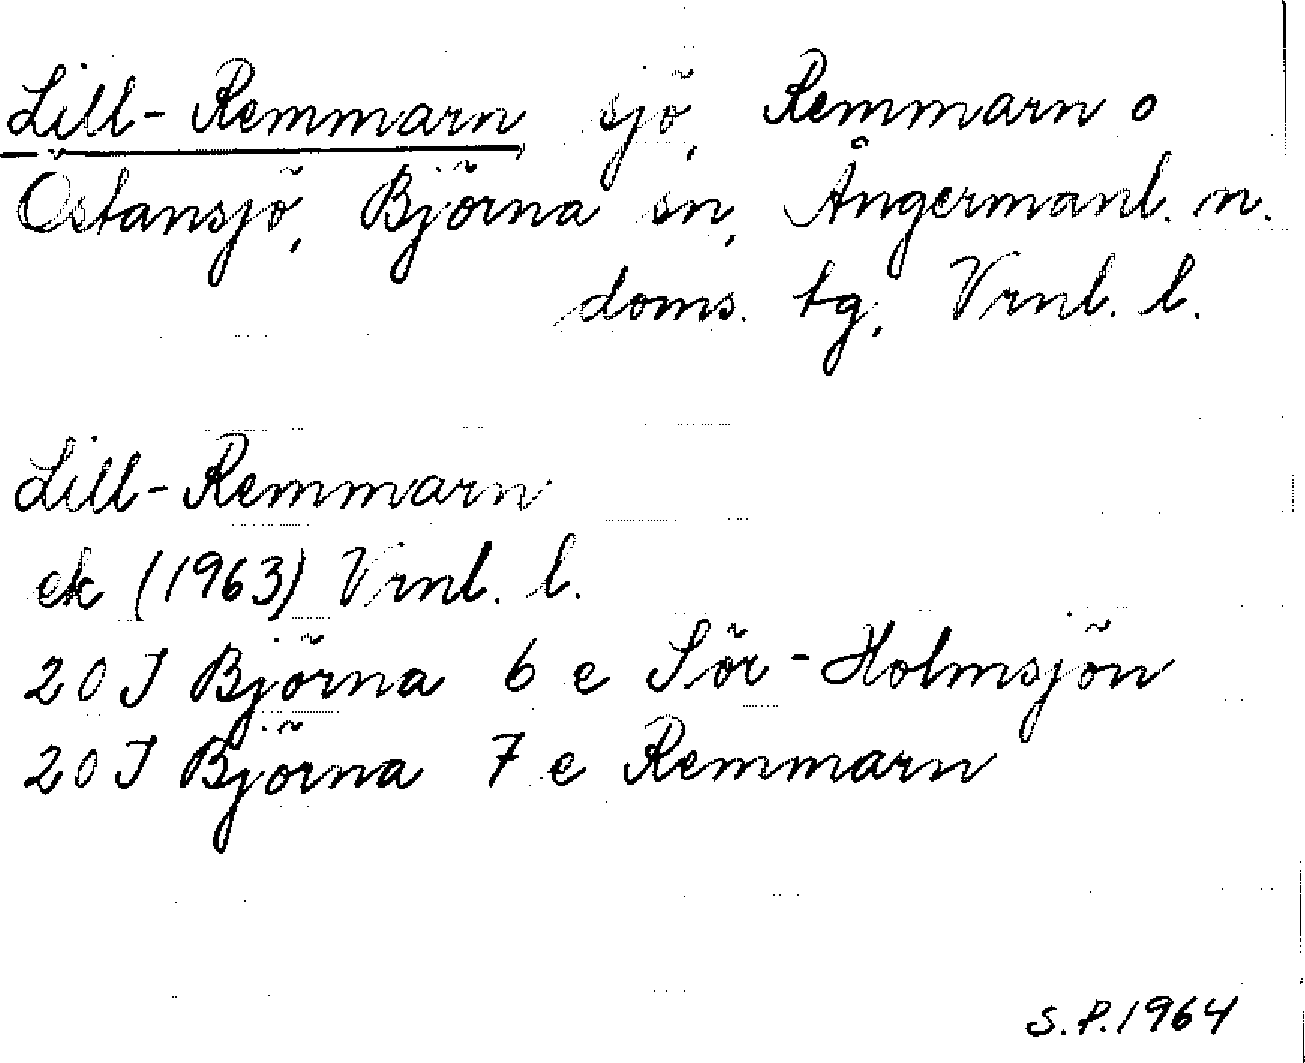 Lill-Remmarn sjö, Remmarn o
Östansjö, Björna sn, Ångermanl. n.
doms. tg, Vrnl. l.
Lill-Remmarn
ek (1963) Vrnl. l.
20 J Björna 6 e Sör-Holmsjön
20 J Björna 7 e Remmarn
S.P. 1964